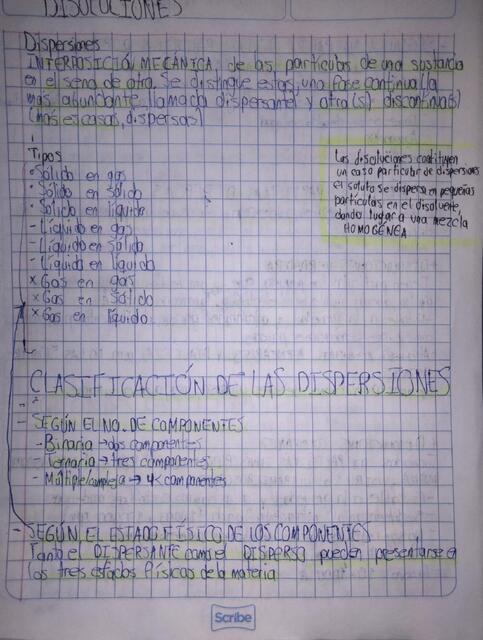 DISOLUCIONES
Dispersiones
INTERPOSICIÓN MECÁNICA de las partículas de una sustancia
en el seno de otra. Se distingue estas, una fase continua (la
más abundante, llamada dispersante y otra(s) discontinua(s)
(más escasas, dispersas)
Tipos
• Sólido en gas
• Sólido en sólido
• Sólido en líquido
- Líquido en gas
- Líquido en sólido
- Líquido en líquido
x Gas en gas
x Gas en sólido
x Gas en líquido
Las disoluciones constituyen
un caso particular de dispersiones
el soluto se dispersa en pequeñas
partículas en el disolvente,
dando lugar a una mezcla
HOMOGÉNEA
CLASIFICACIÓN DE LAS DISPERSIONES
- SEGÚN EL NO. DE COMPONENTES
- Binaria → dos componentes
- Ternaria → tres componentes
- Múltiple/compleja → 4< componentes
- SEGÚN EL ESTADO FÍSICO DE LOS COMPONENTES
Tanto el DISPERSANTE como el DISPERSO pueden presentarse en
los tres estados físicos de la materia
Scribe